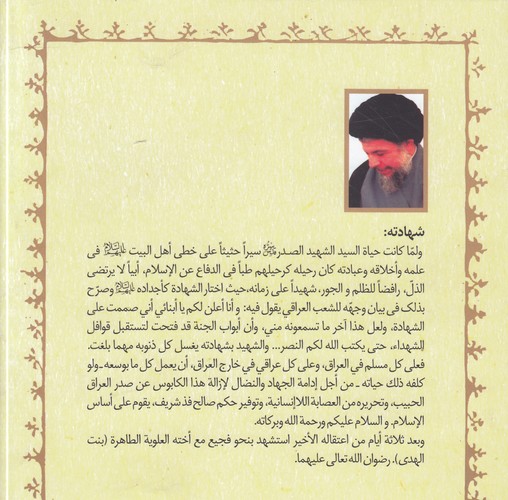 شهادته:
ولمّا كانت حياة السيد الشهيد الصدر سيراً حثيثاً على خطى أهل البيت في
علمه وأخلاقه وعبادته كان رحيله كرحيلهم طبأ في الدفاع عن الإسلام، أبياً لا يرتضى
الذلّ، رافضاً للظلم و الجور، شهيداً على زمانه،حيث اختار الشهادة كأجداده وصرّح
بذلك في بيان وجهُه للشعب العراقي يقول فيه: و أنا أعلن لكم يا أبنائي أني صممت على
الشهادة، ولعل هذا آخر ما تسمعونه مني، وأن أبواب الجنة قد فتحت لتستقبل قوافل
الشهداء، حتى يكتب الله لكم النصر... والشهيد بشهادته يغسل كل ذنوبه مهما بلغت.
فعلى كل مسلم في العراق، وعلى كل عراقي في خارج العراق، أن يعمل كل ما بوسعه ـ ولو
كلفه ذلك حياته ـ من أجل إدامة الجهاد والنضال لإزالة هذا الكابوس عن صدر العراق
الحبيب، وتحريره من العصابة اللاإنسانية، وتوفير حكم صالح فذ شريف، يقوم على أساس
الإسلام. و السلام عليكم ورحمة الله وبركاته.
وبعد ثلاثة أيام من اعتقاله الأخير استشهد بنحو فجيع مع أخته العلوية الطاهرة (بنت
الهدى). رضوان الله تعالى عليهما.